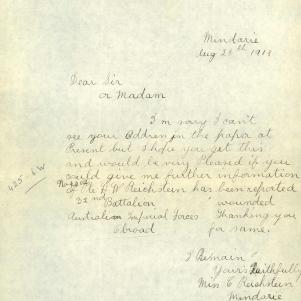 Mindarie
Aug 26th 1918
Dear Sir
or Madam
I'm sorry I can't
see your address in the paper at
Present but I hope you get this
and would be very pleased if you
could give me further information
of No 4202 Pte H W Reichstein has been reported
32nd Battalion wounded
Australian Imperial Forces Thanking you
Abroad for same.
I Remain
Your's Faithfully
Miss E Reichstein
Mindarie
425.6W